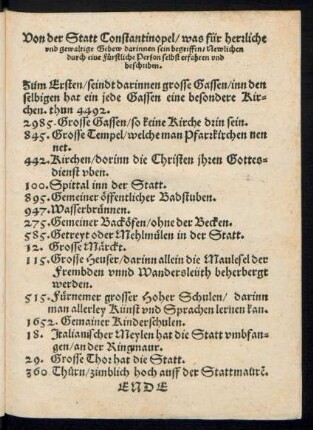 Von der Statt Constantinopel/ was für herzliche
vnd gewaltige Gebew darinnen sein begriffen/ Newlichen
durch eine Fürstliche Person selbst erfahren vnd
beschriben.
Zum Ersten/ seindt darinnen grosse Gassen/ inn den
selbigen hat ein jede Gassen eine besondere Kir-
chen. thun 4492.
2985. Grosse Gassen/ so keine Kirche drin sein.
845. Grosse Tempel/ welche man Pfarzkirchen nen
net.
442. Kirchen/ dorinn die Christen jhren Gottes-
dienst vben.
100. Spittal inn der Statt.
895. Gemeiner öffentlicher Badstuben.
947. Wasserbrünnen.
275. Gemeiner Backöfen/ ohne der Becken.
585. Getreyt oder Mehlmülen in der Statt.
12. Grosse Märckt.
115. Grosse Heuser/ darinn allein die Maulesel der
Frembden vnnd Wandersleüth beherbergt
werden.
515. Fürnemer grosser Hoher Schulen/ darinn
man allerley Künst vnd Sprachen lernen kan.
1652. Gemainer Kinderschulen.
18. Italianischer Meylen hat die Statt vmbfan-
gen/ an der Ringmaur.
29. Grosse Thor hat die Statt.
360 Thürn/ zimblich hoch auff der Stattmaurẽ.
ENDE